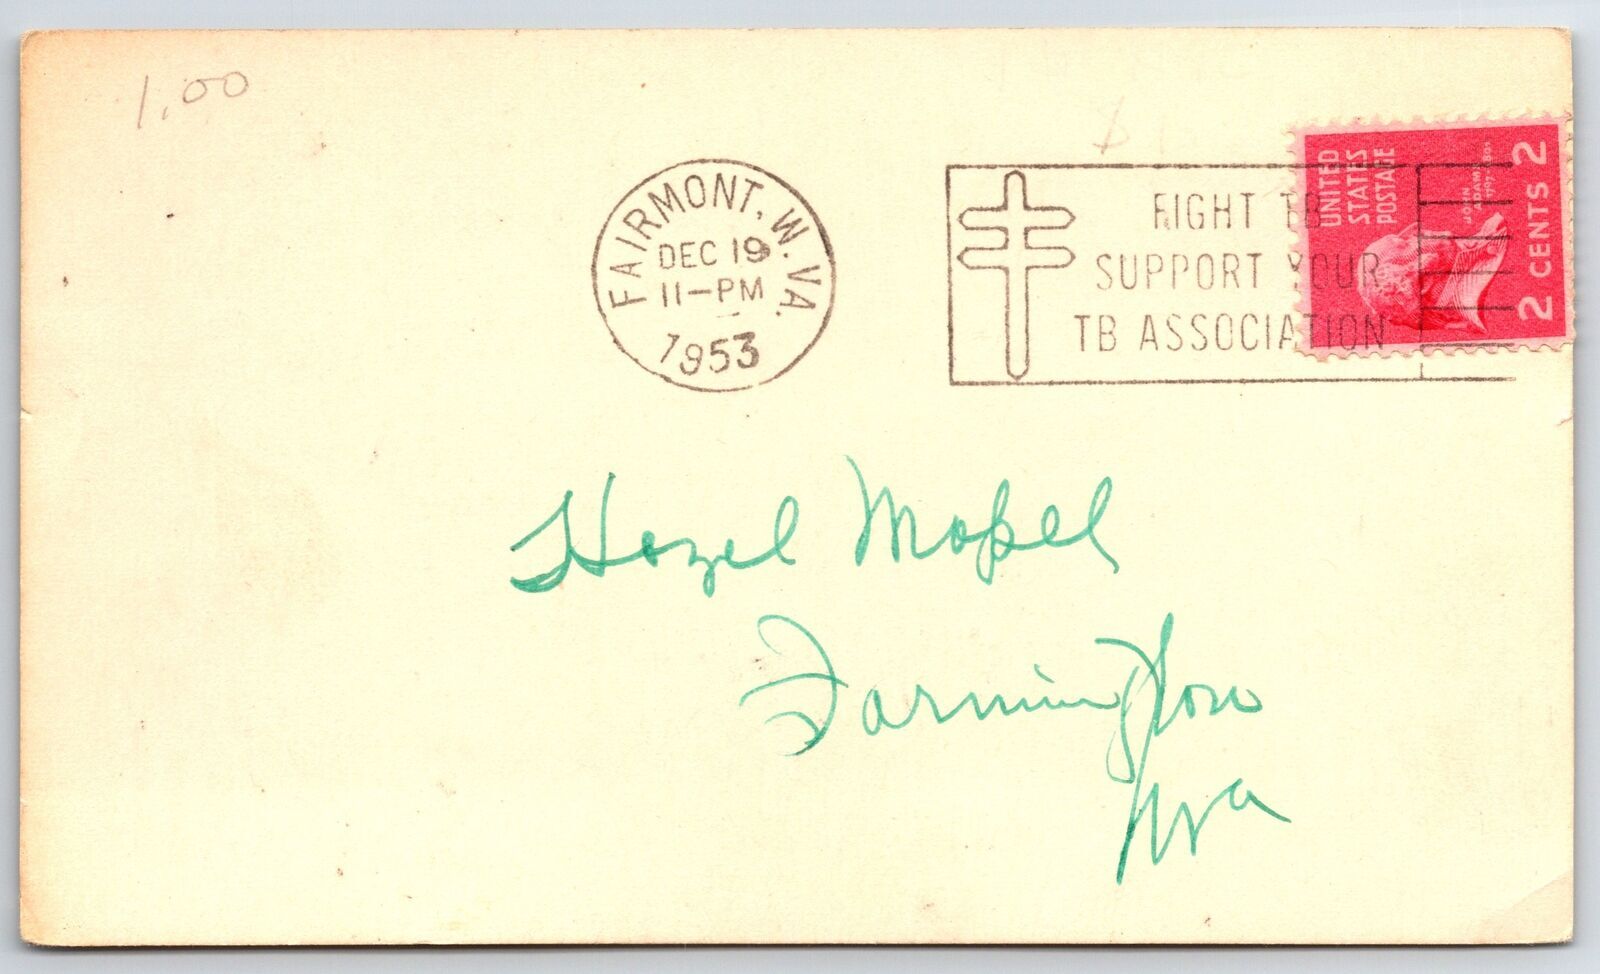 1.00
FAIRMONT, W. VA.
DEC 19
11-PM
1953
FIGHT TB
SUPPORT YOUR
TB ASSOCIATION
UNITED
STATES
POSTAGE
JOHN
ADAMS
1797-1801
2 CENTS 2
Hazel Mapel
Farmington
W Va